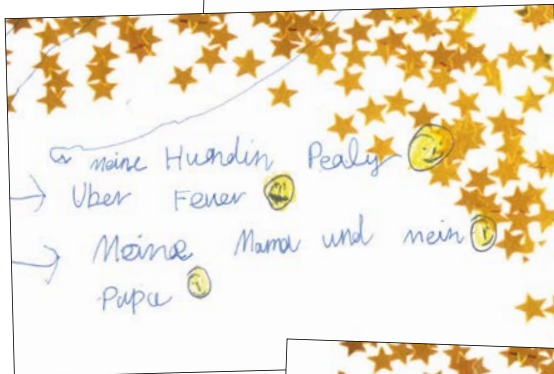 meine Hundin Pealy
→ Uber Feuer
→ Meine Mama und mein
Papa